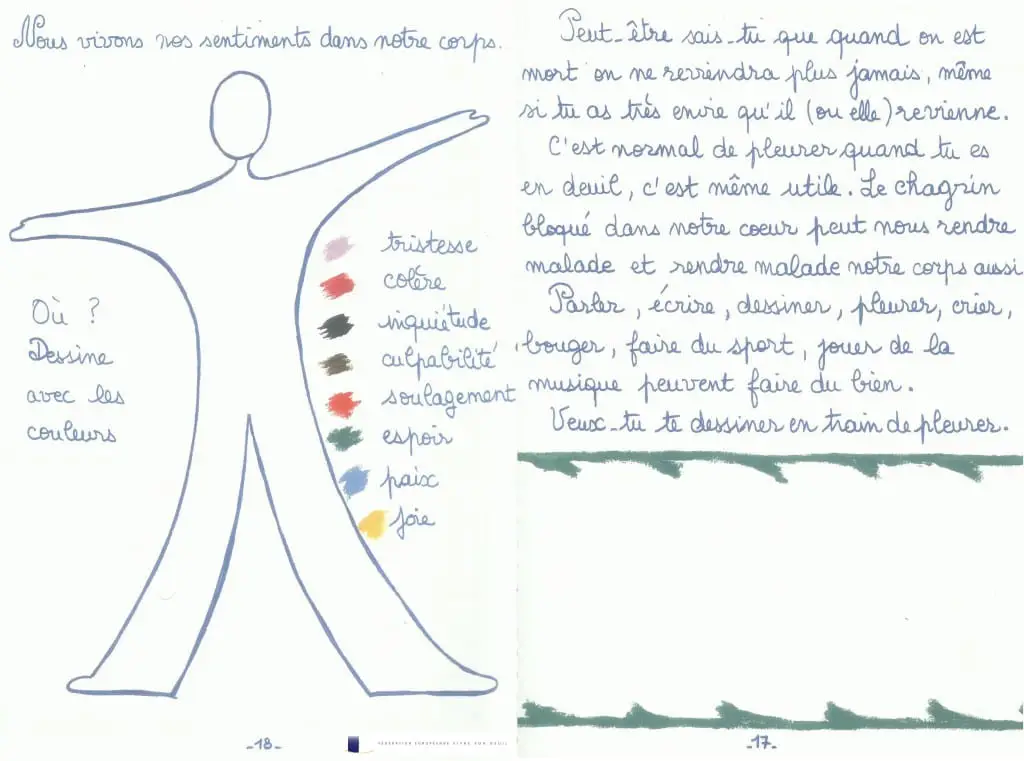 Nous vivons nos sentiments dans notre corps.
tristesse
colère
inquiétude
culpabilité
soulagement
espoir
paix
joie
Où ?
Dessine
avec les
couleurs
-18-
FÉDÉRATION EUROPÉENNE VIVRE SON DEUIL
Peut-être sais-tu que quand on est
mort on ne reviendra plus jamais, même
si tu as très envie qu'il (ou elle) revienne.
C'est normal de pleurer quand tu es
en deuil, c'est même utile. Le chagrin
bloqué dans notre coeur peut nous rendre
malade et rendre malade notre corps aussi
Parler, écrire, dessiner, pleurer, crier,
bouger, faire du sport, jouer de la
musique peuvent faire du bien.
Veux-tu te dessiner en train de pleurer.
-17-